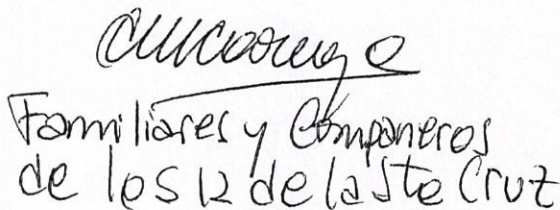 Familiares y Compañeros
de los 12 de la Sta Cruz